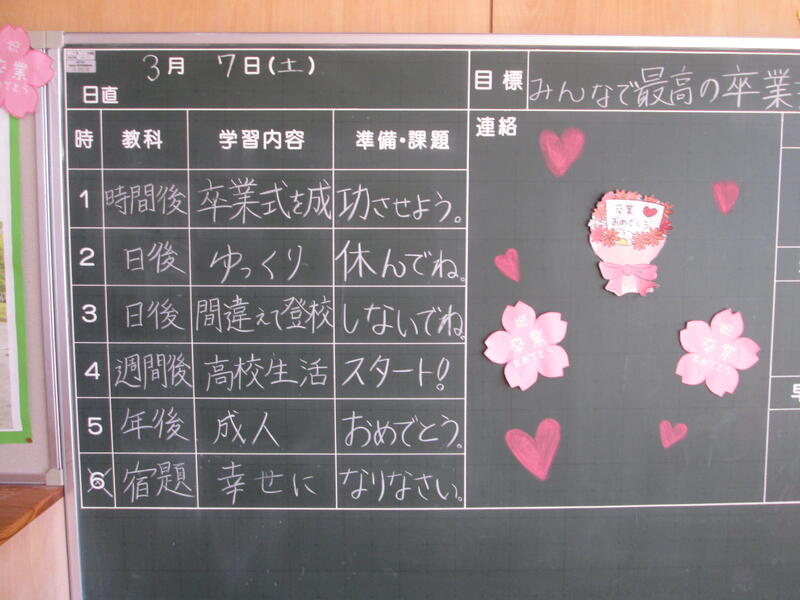 3月 7日(土)
日直
目標 みんなで最高の卒業
時 教科 学習内容 準備・課題
1 時間後 卒業式を成功させよう。
2 日後 ゆっくり 休んでね。
3 日後 間違えて登校しないでね。
4 週間後 高校生活 スタート!
5 年後 成人 おめでとう。
6 宿題 幸せに なりなさい。
連絡
卒業
おめでとう
祝
卒業
おめでとう
祝
卒業
おめでとう
祝
卒業
おめでとう